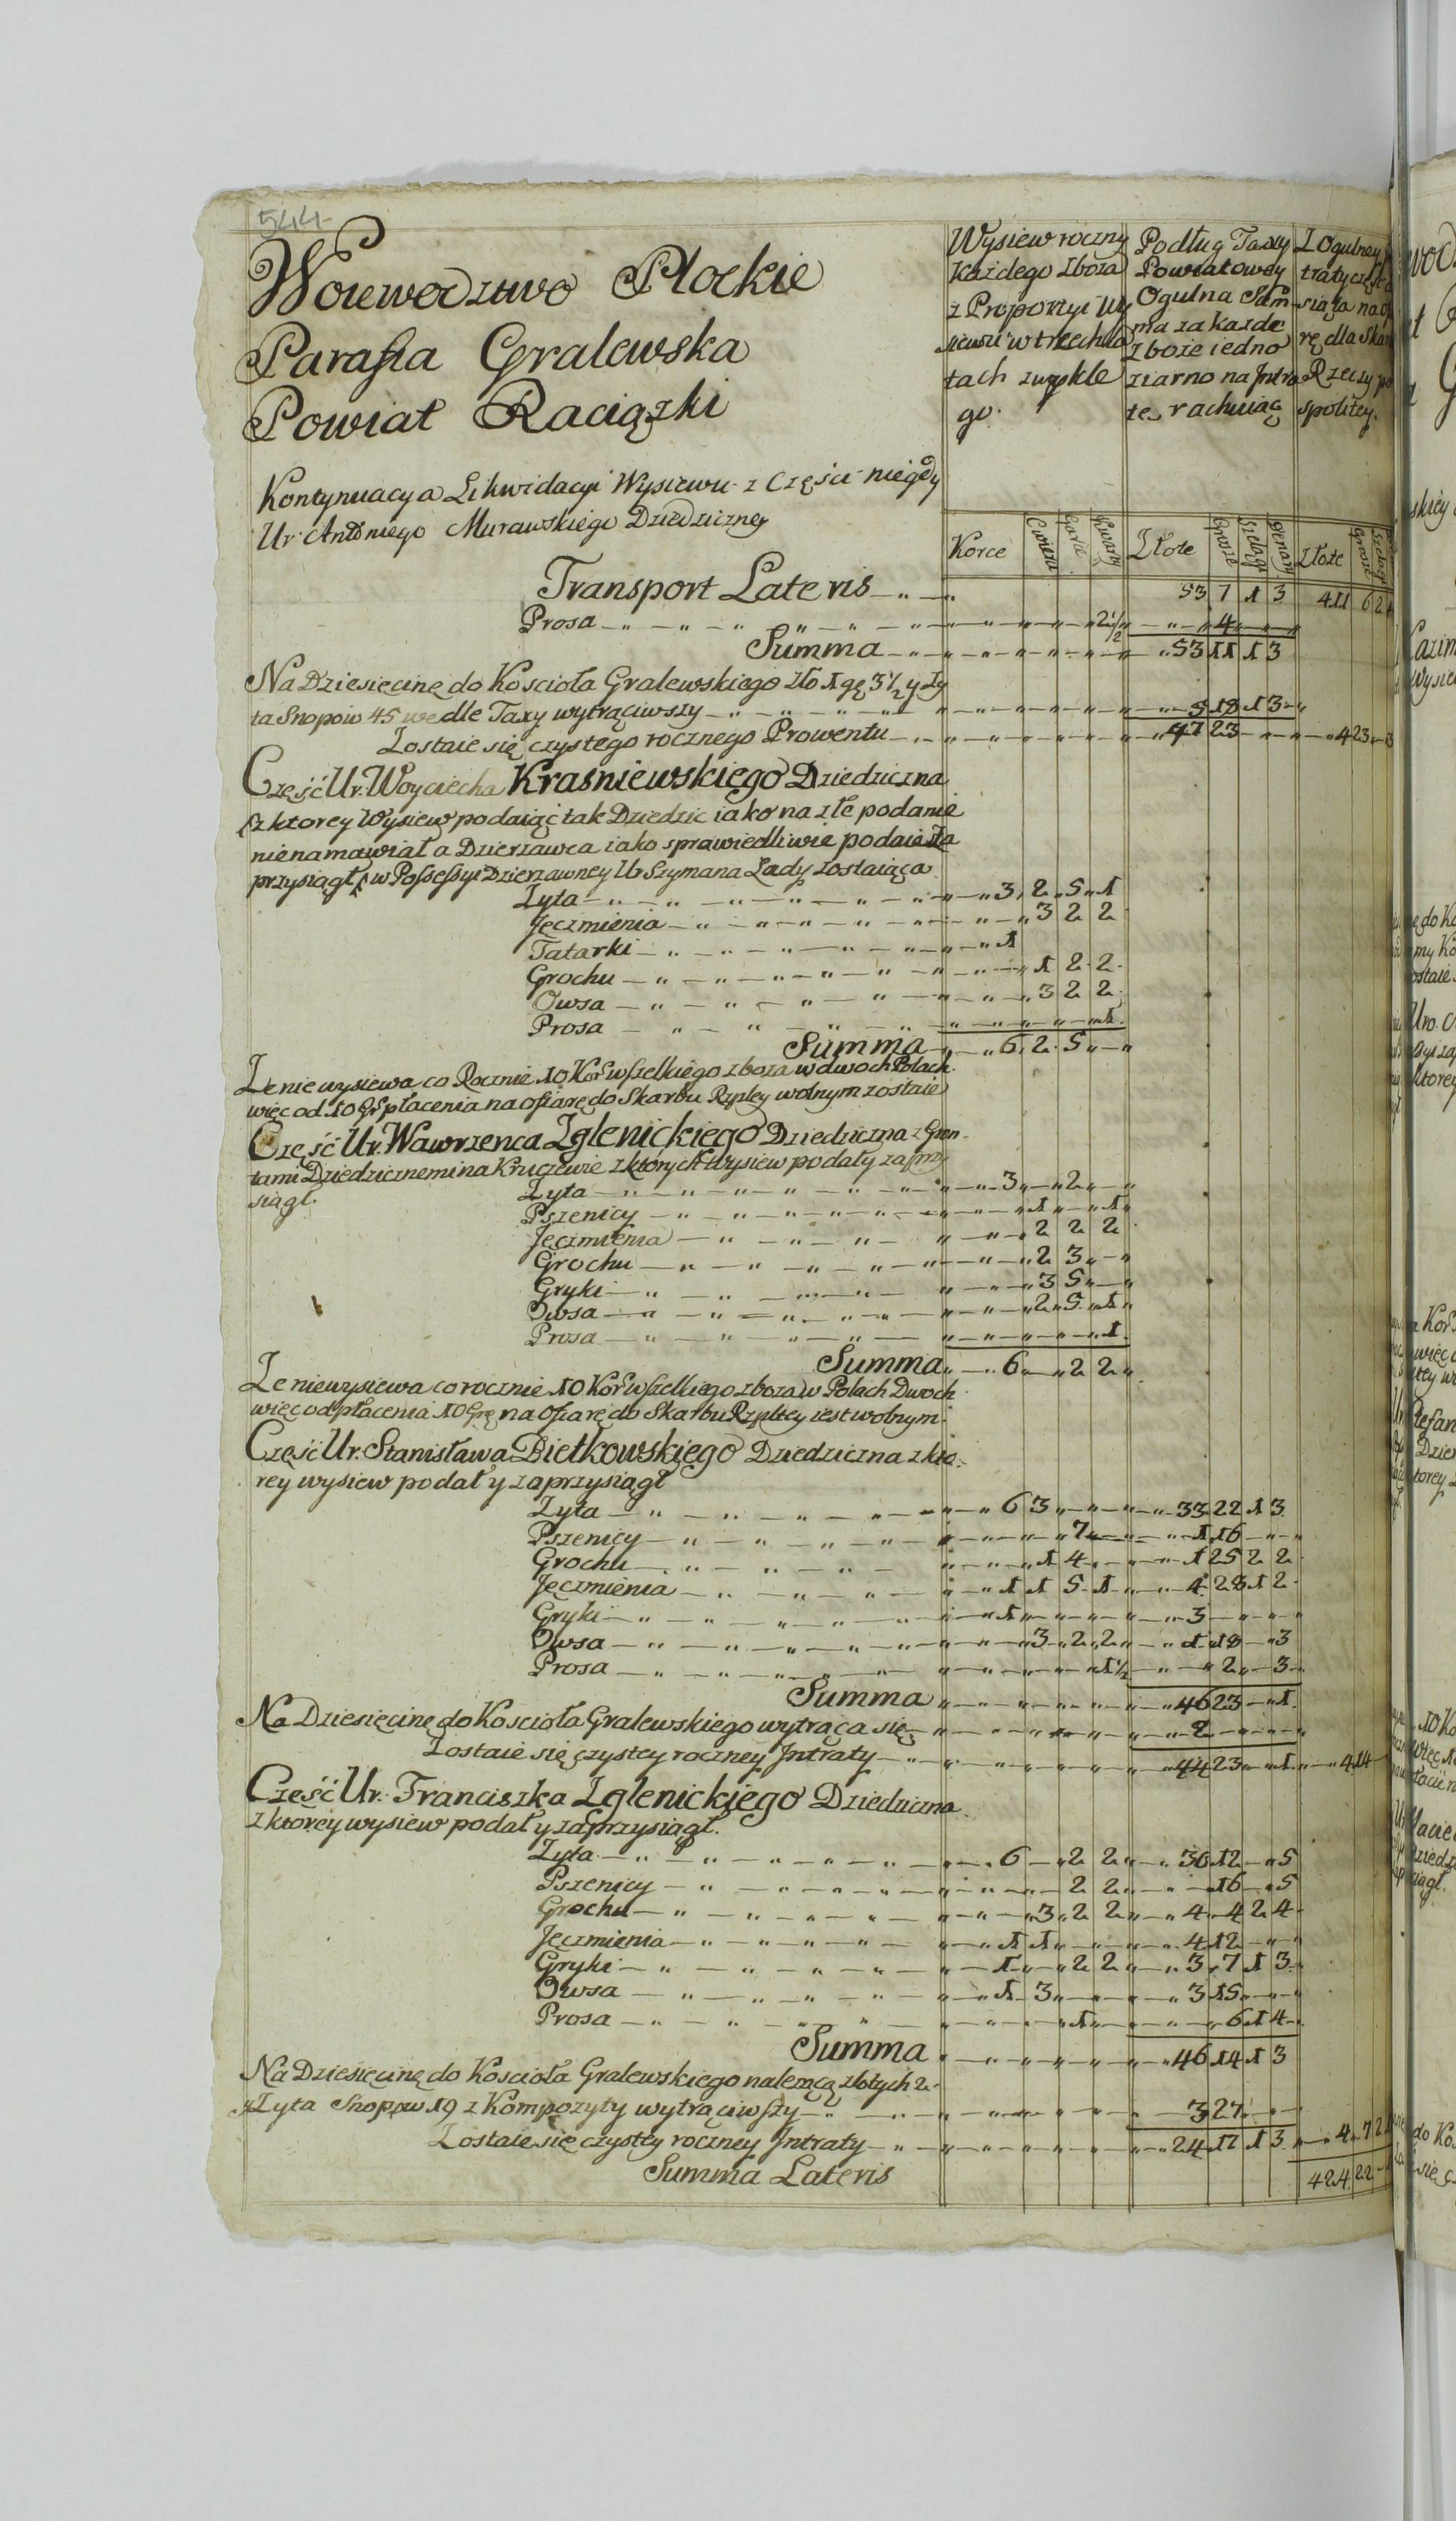 544
Woiewodztwo Płockie
Parafia Gralewska
Powiat Raciązki
Wysiew roczny
Kazdego zboza
z Proporcyi Wy
siewu w trzech la
tach zwykłe
go.
Podług Taxy
Powiatowey
Ogulna Sum-
ma za kazde
zboze iedno
ziarno na Intra
te rachuiąc
Z Ogulney
traty część
siąta na
rę dla Skar
Rzeczy po
spolitey.
Kontynuacya Likwidacyi Wysiewu z Części niegdy
Ur: Antoniego Murawskiego Dziedziczney
Korce Cwierci Garce Kwarty Złote Grosze Szelągi Denary Złote Grosze Szelągi
Transport Lateris 53 7 1 3 411 6 2
Prosa 2 1/2 4
Summa 53 11 1 3
Na Dziesięcinę do Koscioła Gralewskiego Zło 1 gę 3 1/2 y Zy
ta Snopow 45 wedle Taxy wytrąciwszy 5 18 1 3
Zostaie się czystego rocznego Prowentu 47 23 4 23 3
Część Ur: Woyciecha Krasniewskiego Dziedziczna
z ktorey Wysiew podaiąc tak Dziedzic iako na złe podanie
nienamawiał a Dzierzawca iako sprawiedliwie podaie za
przysiągł w Possessyi Dzierzawney Ur Szymana Lady zostaiąca
Zyta 3 2 5 1
Jęczmienia 3 2 2
Tatarki 1
Grochu 1 2 2
Owsa 3 2 2
Prosa 1
Summa 6 2 5
Ze nie wysiewa co Rocznie 10 Kor wszelkiego zboza w dwoch Polach
więc od 10 Gr płacenia na ofiarę do Skarbu Rzpltey wolnym zostaie
Część Ur. Wawrzenca Zglenickiego Dziedziczna z Grun
tami Dziedzicznemi na Kruczewie z ktorych Wysiew podał y zaprzy
siągł.
Zyta 3 2
Pszenicy 1 1
Jęczmienia 2 2 2
Grochu 2 3
Gryki 3 5
Owsa 2 5 1
Prosa 1
Summa 6 2 2
Ze niewysiewa corocznie 10 Kor wszelkiego zboza w Polach Dwoch
więc od płacenia 10 Grę na Ofiarę do Skarbu Rzpltey iest wolnym.
Część Ur. Stanisława Bietkowskiego Dziedziczna z kto
rey wysiew podał y zaprzysiągł
Zyta 6 3 33 22 1 3
Pszenicy 7 1 16
Grochu 1 4 1 25 2 2
Jęczmienia 1 1 5 1 4 28 1 2
Gryki 1 3
Owsa 3 2 2 1 18 3
Prosa 1 1/2 2 3
Summa 46 23 1
Na Dziesięcinę do Koscioła Gralewskiego wytrąca się 2
Zostaie się czystey roczney Intraty 44 23 1 4 14
Część Ur. Franciszka Zglenickiego Dziedziczna
z ktorey wysiew podał y zaprzysiągł.
Zyta 6 2 2 30 12 5
Pszenicy 2 2 16 5
Grochu 3 2 2 4 4 2 4
Jęczmienia 1 1 4 12
Gryki 1 2 2 3 7 1 3
Owsa 1 3 3 15
Prosa 1 6 1 4
Summa 46 14 1 3
Na Dziesięcinę do Koscioła Gralewskiego nalezącą złotych 2
y Zyta Snopow 19 z Kompozyty wytrąciwszy 3 27
Zostaie się czystey roczney Intraty 24 17 1 3 4 7 2
Summa Lateris 424 22